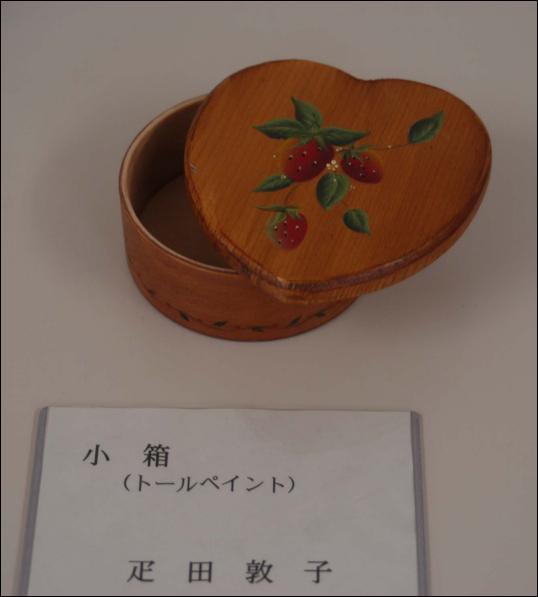 小 箱
（トールペイント）
疋 田 敦 子